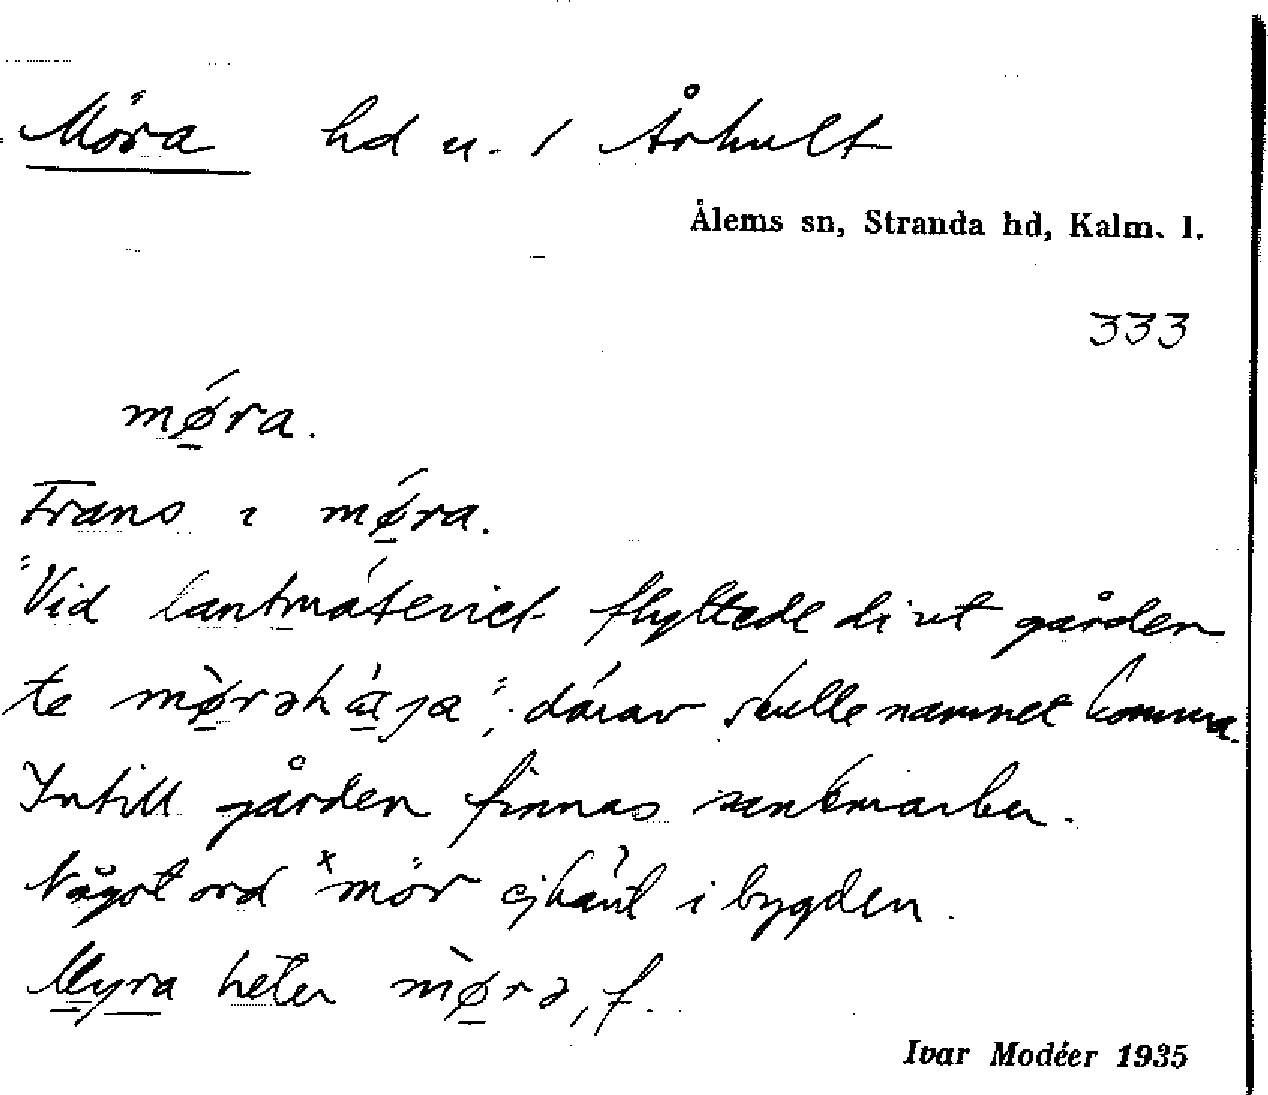 Möra hd u. 1 Århult
Ålems sn, Stranda hd, Kalm. l.
333
mǿ̱ra.
Frans i mǿ̱ra.
"Vid lantmäteriet flyttede di ut gården
te mø̱̀rəha̱ga"; därav skulle namnet komma.
Intill gården finnas sankmarker.
Något ord ˣmör ej känt i bygden.
Myra heter mø̱̀rə, f.
Ivar Modéer 1935